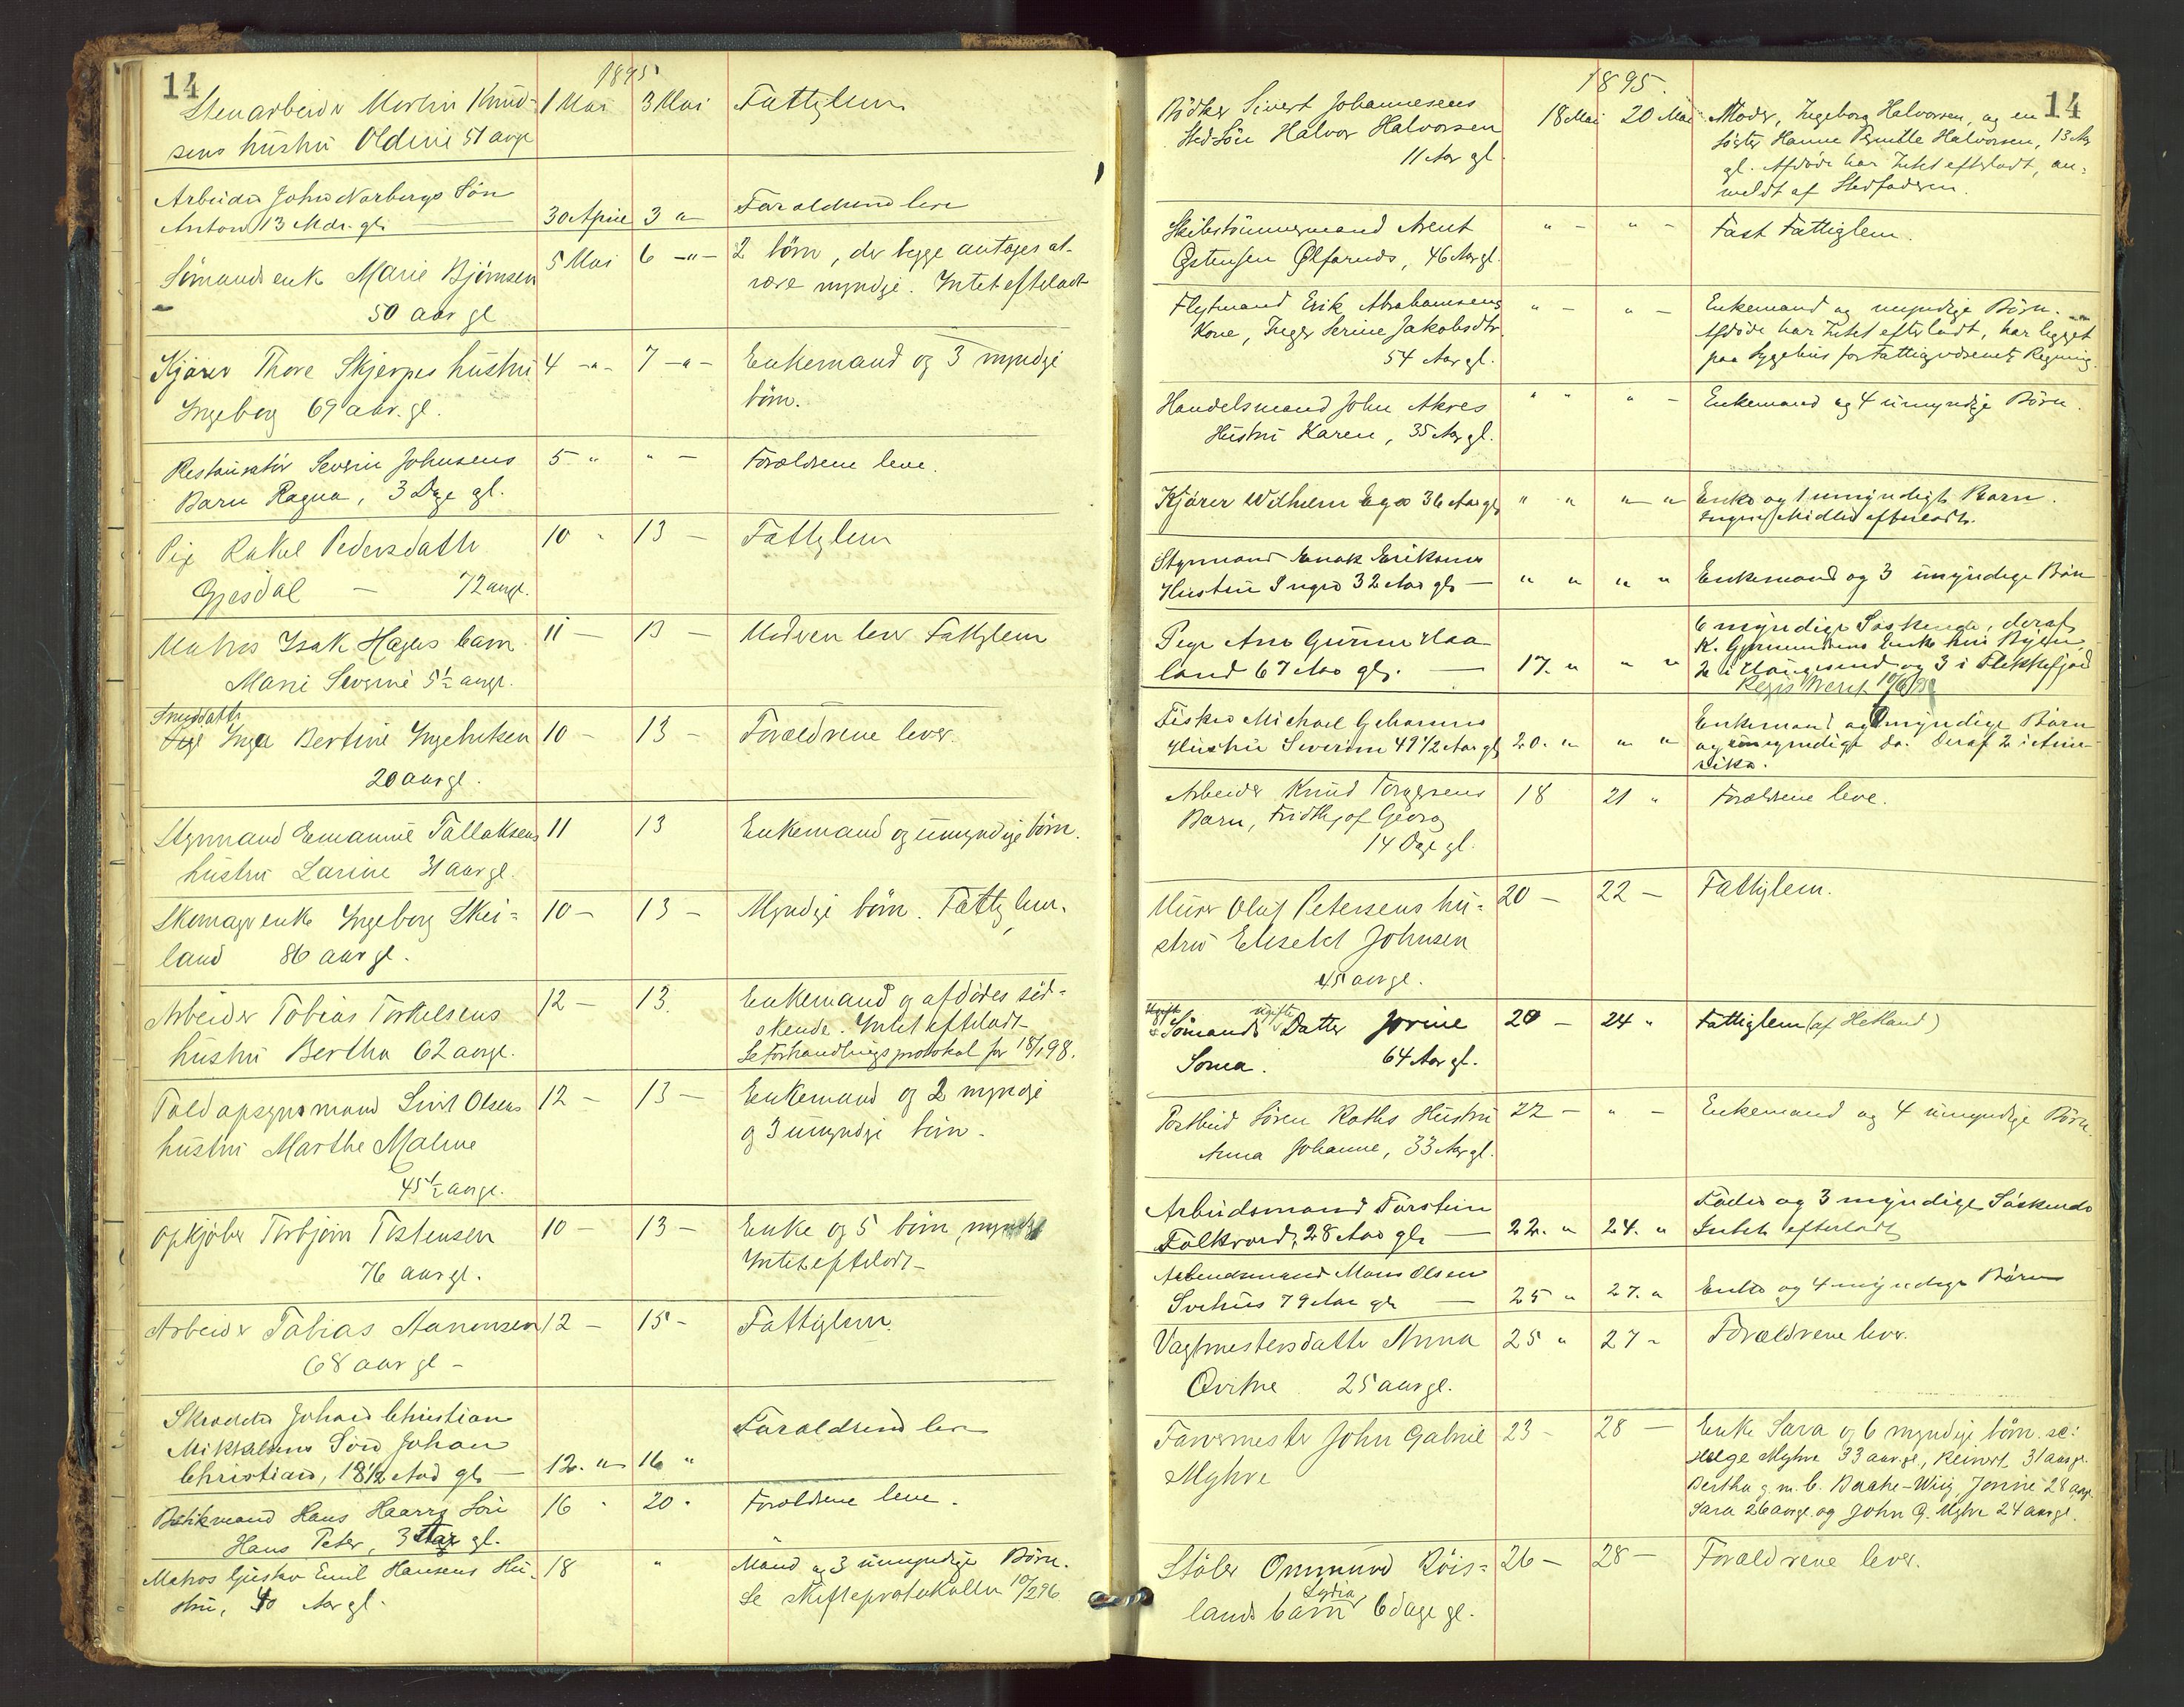 14
1895
Stenarbeider Martin Knud- 1 Mai 3 Mai Fattiglem
sens hustru Oldine 51 aar gl
Arbeider John Norbergs Søn
Anton 13 Mdr. gl. — 30 April 3 " Forældrene leve
Sømands enk Marie Bjørnsen 5 Mai 6 -"- 2 børn, der begge antages at
50 aar gl være myndige. Intet efterladt
Kjører Thore Skjerpes hustru 4 -"- 7 -"- Enkemand og 3 myndige
Ingeborg 69 aar. gl. børn.
Restauratør Severin Johnsens 5 " " - Forældrene leve.
Barn Ragna, 3 Dage gl.
Pige Rakel Pedersdatter 10 - 13 - Fattiglem
Gjesdal — 72 aar gl.
Matros Isak Hagers barn 11 - 13 - Moderen lever Fattiglem
Marie Severine 5 1/2 aar gl.
Snedkdatter
Inga Bertine Ingebretsen 10 - 13 - Forældrene lever.
20 aar gl.
Styrmand Emanuel Tallaksens 11 13 Enkemand og umyndige børn.
hustru Larine 31 aar gl.
Skomager enke Ingeborg Skei= 10 - 13 - Myndige børn. Fattiglem.
land 86 aar gl.
Arbeider Tobias Torkelsens 12 - 13. Enkemand og afdødes sød-
hustru Bertha 62 aar gl. skende. Intet efterladt
Se Forhandlingsprotokol for 18/1 98.
Toldopsynsmand Sivert Olsens 12 - 13 - Enkemand og 2 myndige
hustru Marthe Malene og 3 umyndige børn.
45 1/2 aar gl.
Opkjøber Torbjørn Tostensen 10 - 13 - Enke og 5 børn myndige
76 aar gl. Intet efterladt
Arbeider Tobias Aanensen 12 - 15 - Fattiglem.
68 aar gl -
Skrædder Johan Christian Forældrene leve
Mikkalsens Søn Johan
Christian, 18 1/2 Aar gl. — 12. " 16 "
Hans Haarrs Søn 16 " 20 " Forældrene leve.
Hans Peter, 3 gl.
Matros Gustav Emil Hansens Hu- 18 " Mand og 3 umyndige Børn.
stru, 40 Aar gl. Se Skifteprotokollen 10/2 96.
14
1895.
Bødker Sivert Johannesens 18 Mai 20 Mai Moder, Ingeborg Halvorsen, og en
Stedsøn Halvor Halvorsen søster Hanne Pernille Halvorsen, 13 Aar
11 Aar gl. gl. Afdøde har Intet efterladt, an-
meldt af Stedfaderen.
Skibstømmermand Arent " - " - Fast Fattiglem.
Østensen Ølfarnes, 46 Aar gl.
Flytmand Erik Abrahamsens " - " - Enkemand og myndige Børn.
Kone, Inger Serine Jakobsdtr. Afdøde har Intet efterladt, har ligget
54 Aar gl. paa Sygehus for Fattigvæsenets Regning.
Handelsmand John Akres " " " - Enkemand og 4 umyndige Børn.
Hustru Karen, 35 Aar gl.
Kjører Wilhelm Ege 36 Aar gl " " " " Enke og 1 umyndigt Barn.
Ingen Midler efterladt.
Styrmand Enok Eriksens
Hustru Inger 32 Aar gl. — " " " " Enkemand og 3 umyndige Børn
Pige Ane Gurine Haa- 6 myndige Søskende, deraf
land 67 Aar gl. — 17. " " " K. Gjermundsens Enke her i Byen,
2 i Haugesund og 3 i Flekkefjord
Fisker Michael Gehannes Enkemand og myndige Børn
Hustru Severine 49 1/2 Aar gl 20. " " " og umyndige do. deraf 2 i Ame-
rika.
Arbeider Knud Torgersens 18 21 " Forældrene leve.
Barn, Fridthjof Georg
14 Dage gl.
Murer Oluf Petersens hu= 20 - 22 - Fattiglem.
stru Elisabet Johnsen
45 aar gl.
ugifte
Sømands Datter Jorine 20 - 24 " Fattiglem (af Hetland)
Soma. 64 Aar gl.
Postbud Søren Roths Hustru 22 - " - Enkemand og 4 umyndige Børn.
Anna Johanne, 33 Aar gl.
Arbeidsmand Torstein Fader og 3 myndige Søskende
Folkvord, 28 Aar gl. — 22. " 24. " Intet efterladt
Arbeidsmand Mons Olsen
Svihus 79 Aar gl. — 25 " 27. " Enke og 4 myndige Børn
Vagtmestersdatter Anna 25 " 27 - Forældrene lever.
Qvitne 25 aar gl.
Farvermester John Gabriel 23 - 28 - Enke Sara og 6 myndige børn. sc:
Myhre Helge Myhre 33 aar gl, Reinert 31 aar gl.
Bertha g. m. C. Braake-Wiig, Jonine 28 aar gl.
Sara 26 aar gl. og John G. Myhre 24 aar gl.
Støber Ommund Røis= 26 - 28 - Forældrene lever.
Lydia
lands barn 6 dage gl.